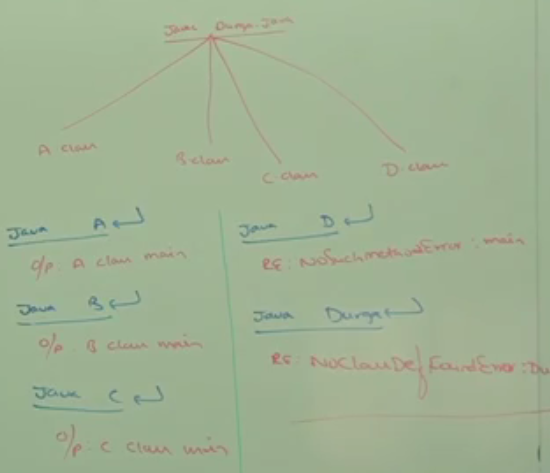 Javac Durga.Java
A.class
B.class
C.class
D.class
Java A↵
o/p: A class main
Java B↵
o/p: B class main
Java C↵
o/p: C class main
Java D↵
RE: NoSuchmethodError: main
Java Durga↵
RE: NoClassDefFoundError: Du